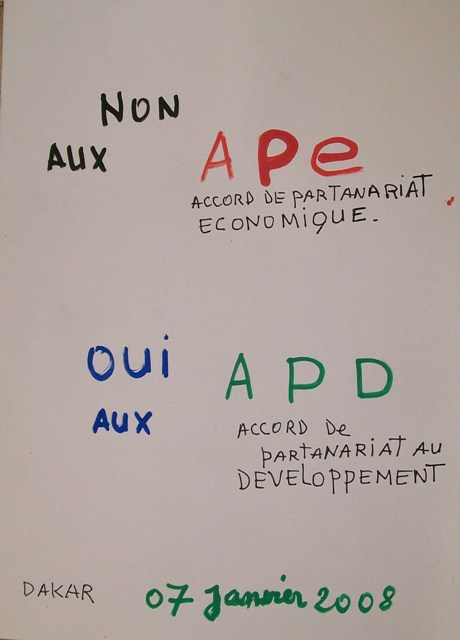 NON
AUX APe
ACCORD DE PARTANARIAT
ECONOMIQUE.
OUi
AUX APD
ACCORD De
PARTANARIAT AU
DEVELOPPEMENT
DAKAR 07 Janvier 2008